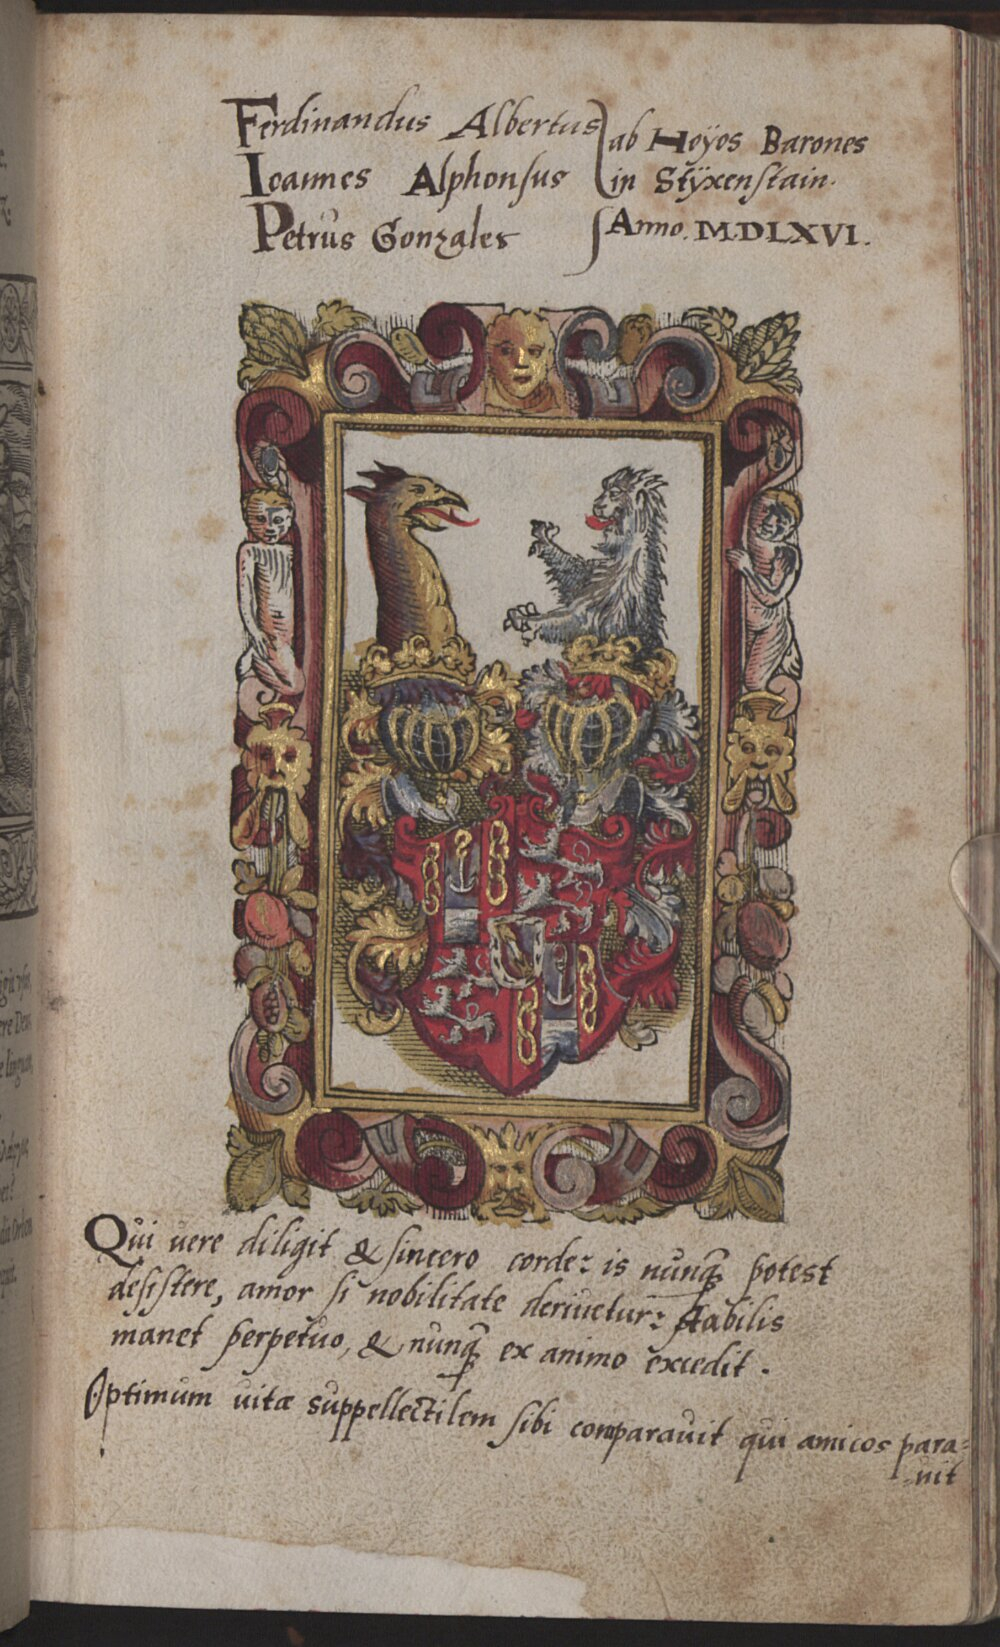 Ferdinandus Albertus ab Hoÿos Barones
Ioannes Alphonsus in Stÿxenstain.
Petrus Gonzales Anno. M.DLXVI.
Qui uere diligit & sincero corde: is nunq̃ potest
desistere, amor si nobilitate deriuetur: stabilis
manet perpetuo, & nunq̃ ex animo excedit.
Optimum uitæ suppellectilem sibi comparauit qui amicos para=
uit